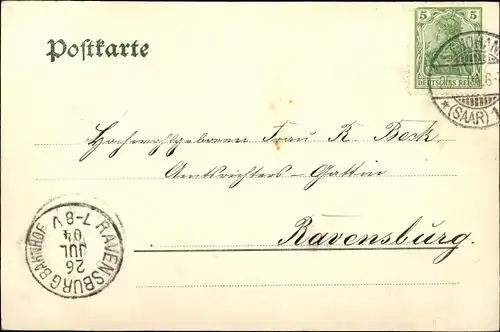 Postkarte
5 5
DEUTSCHES REICH
(SAAR) 1
Hochwohlgeboren Frau R. Beck
Amtsrichters-Gattin
Ravensburg.
RAVENSBURG BAHNHOF
26
JUL
04
7-8V